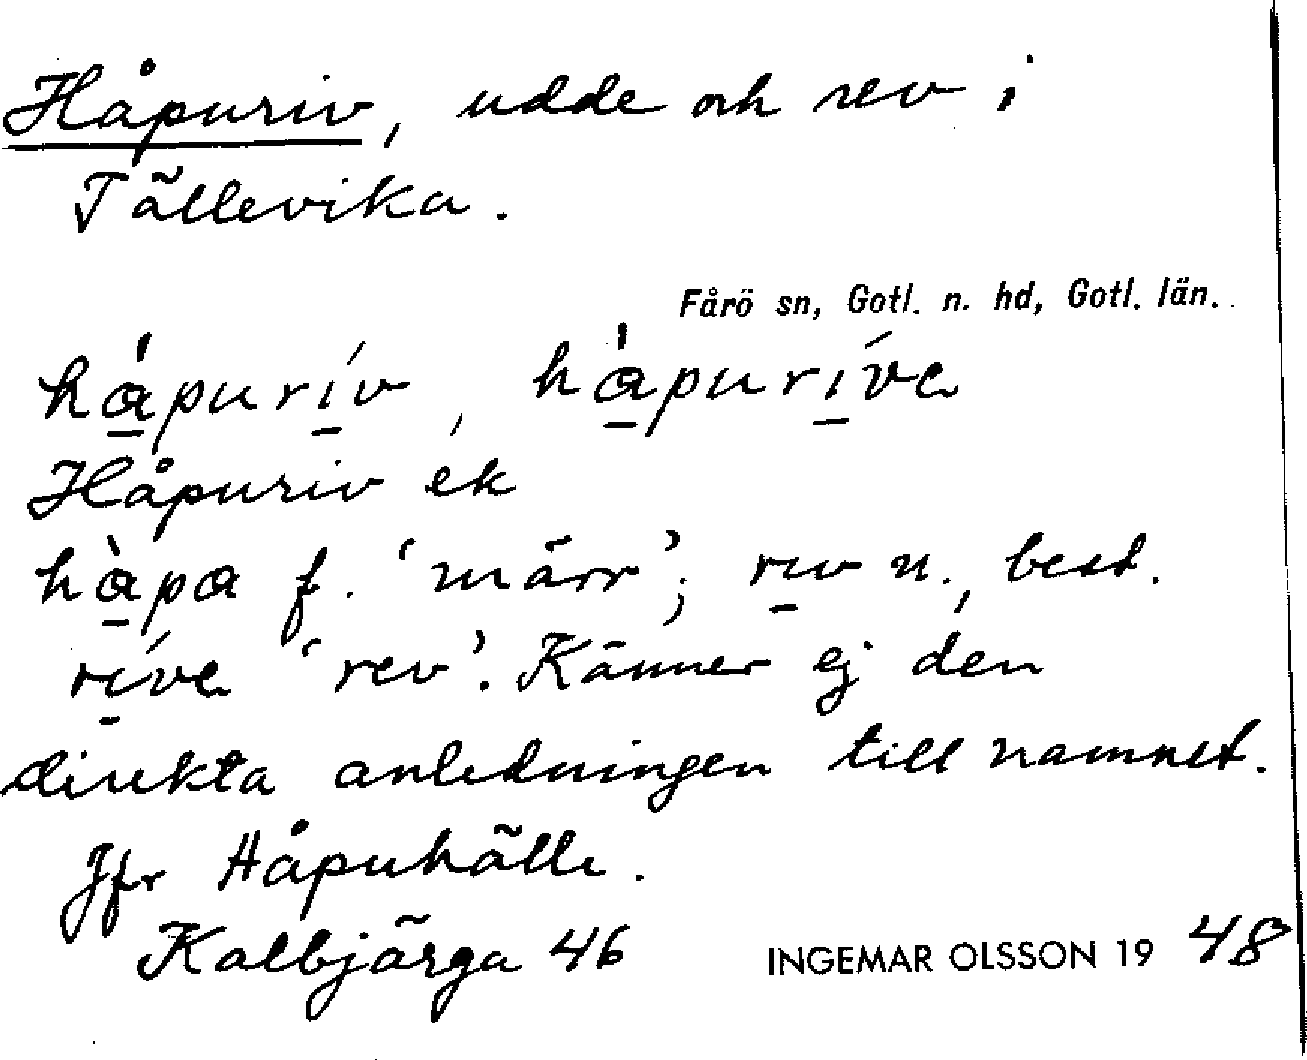 Håpuriv, udde och rev i
Tällevika.
Fårö sn, Gotl. n. hd, Gotl. län.
håpuriv, håpurive
Håpuriv ek
hàpa f. 'märr'; riv n., best.
rive 'rev'. Känner ej den
direkta anledningen till namnet.
Jfr Håpuhälle.
Kalbjärga 46 INGEMAR OLSSON 19 48